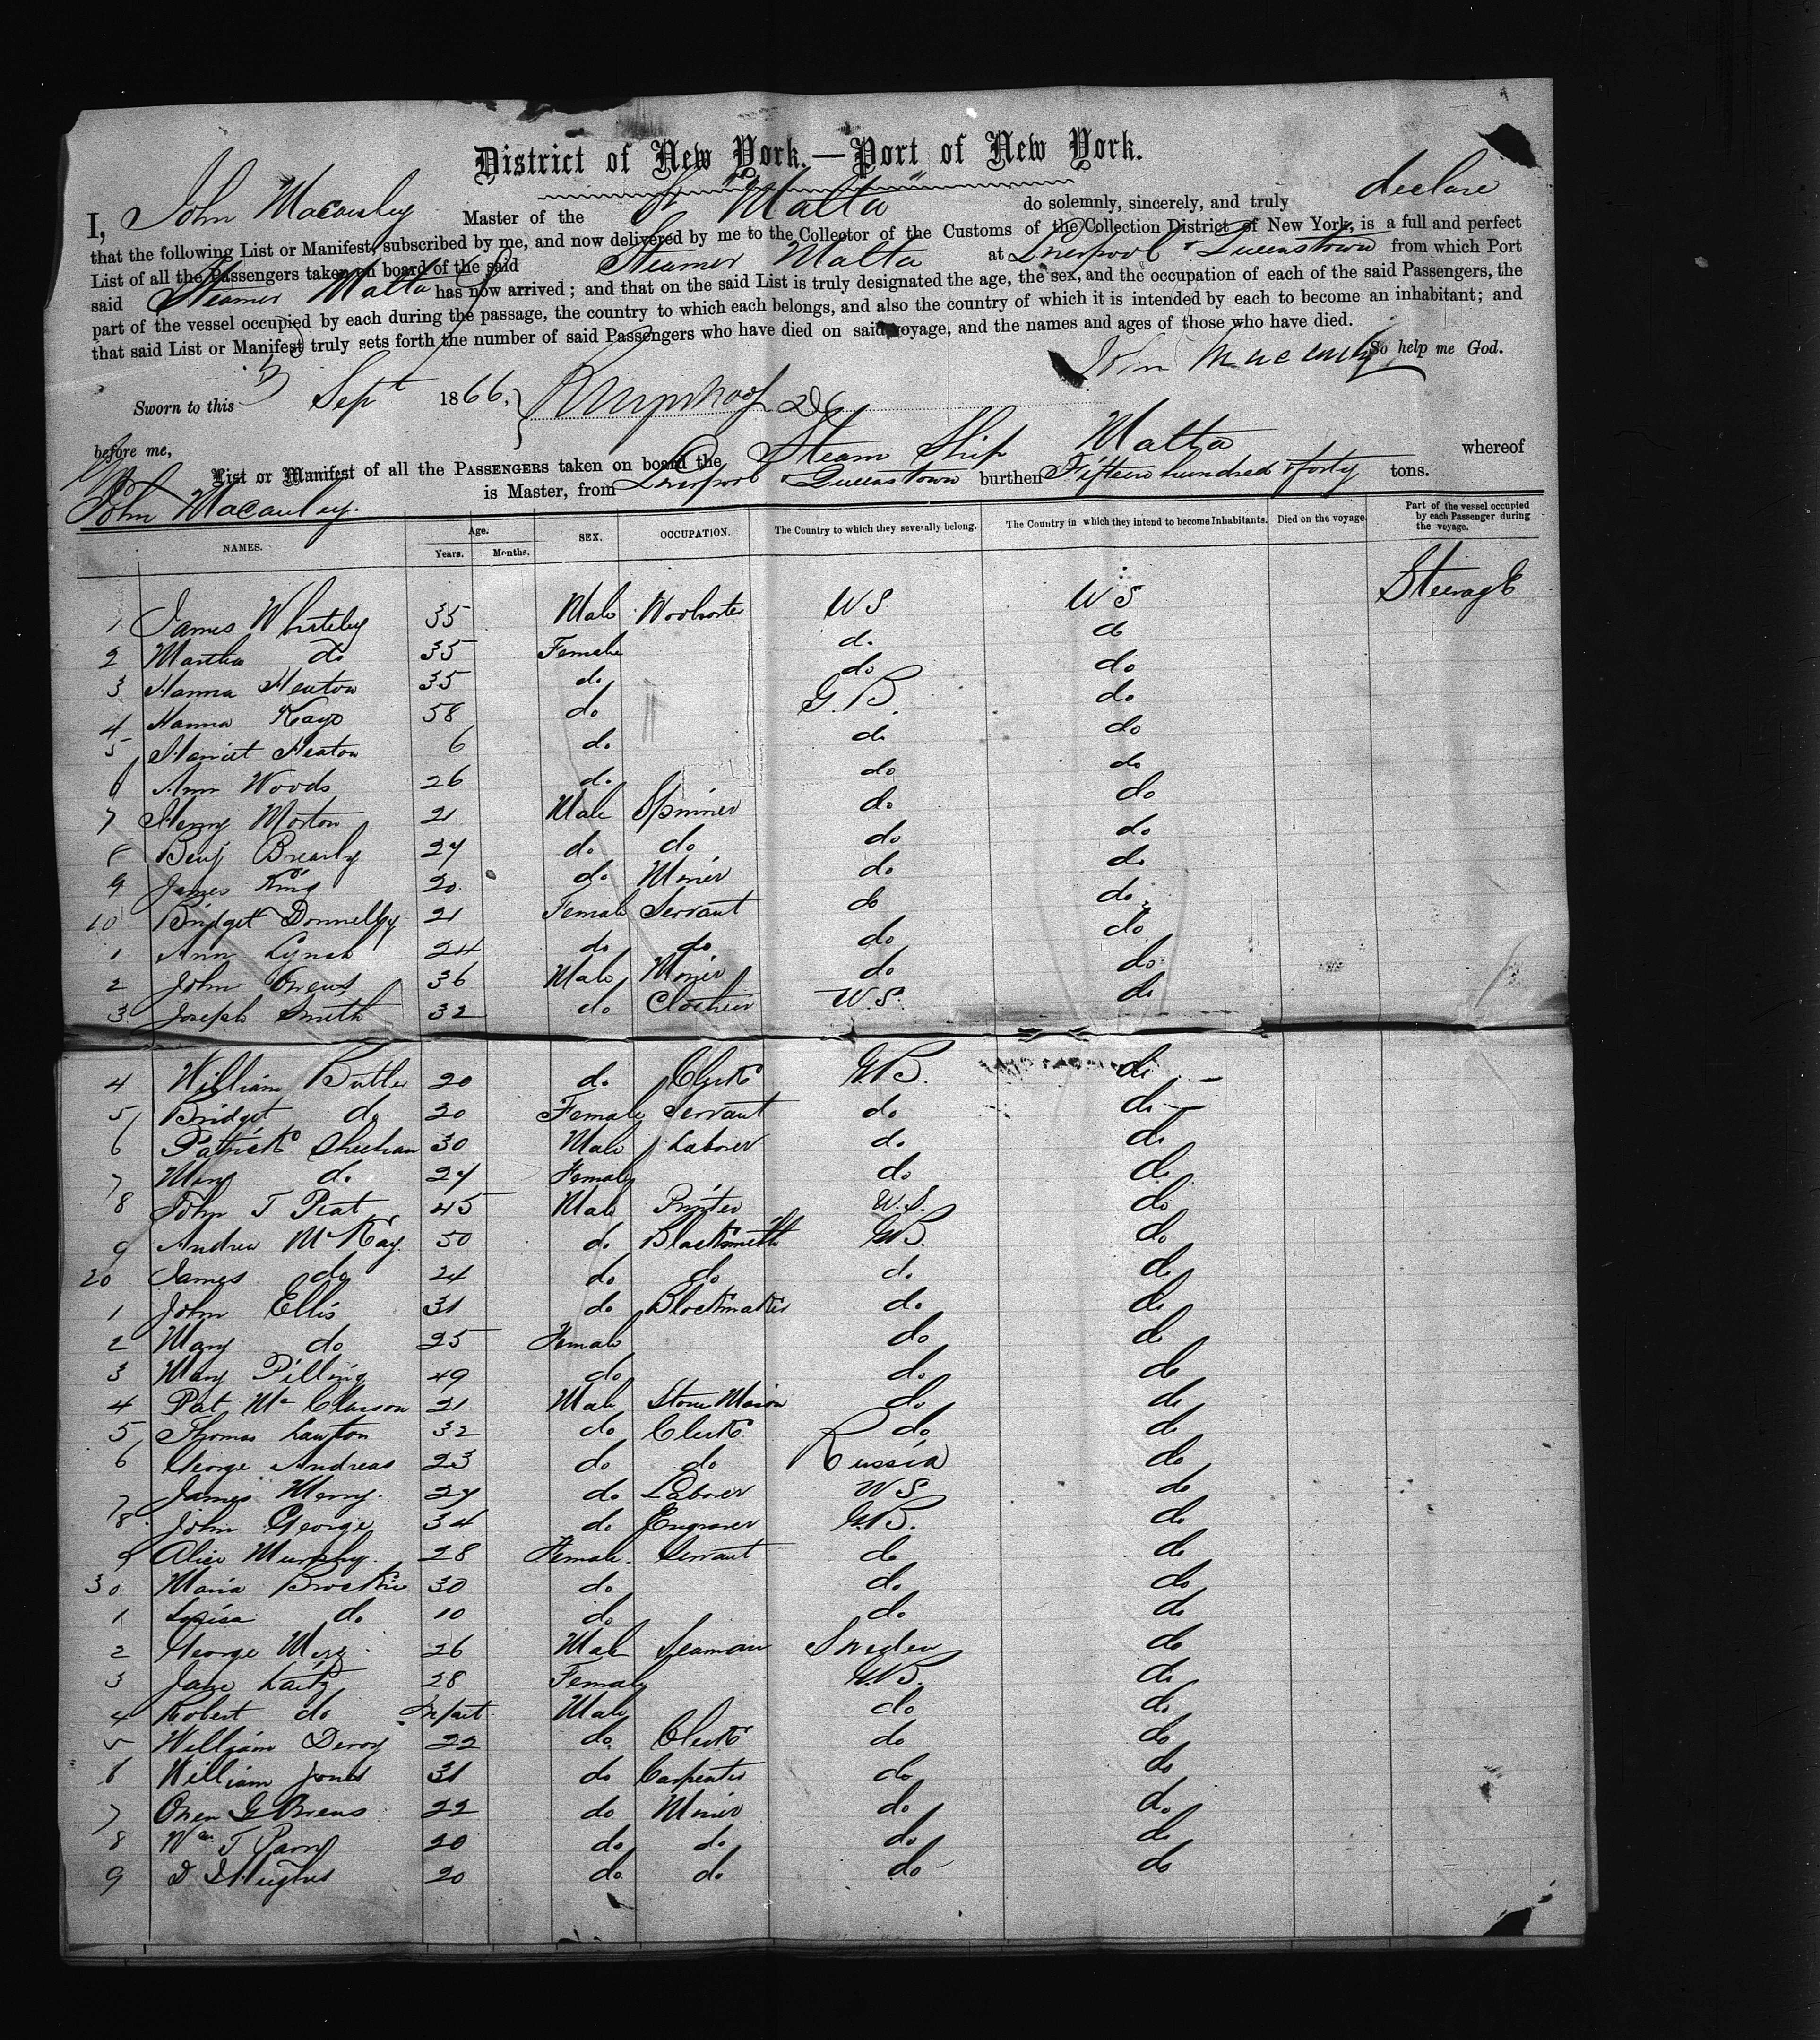 District of New York.—Port of New York.
I, John Macauley Master of the Str "Malta" do solemnly, sincerely, and truly declare
that the following List or Manifest, subscribed by me, and now delivered by me to the Collector of the Customs of the Collection District of New York, is a full and perfect
List of all the Passengers taken on board of the said Steamer Malta at Liverpool & Queenstown from which Port
said Steamer Malta has now arrived; and that on the said List is truly designated the age, the sex, and the occupation of each of the said Passengers, the
part of the vessel occupied by each during the passage, the country to which each belongs, and also the country of which it is intended by each to become an inhabitant; and
that said List or Manifest truly sets forth the number of said Passengers who have died on said voyage, and the names and ages of those who have died.
John Macauley So help me God.
Sworn to this 5 Sept 1866,
before me,
List or Manifest of all the PASSENGERS taken on board the Steam Ship Malta whereof
John Macauley. is Master, from Liverpool & Queenstown burthen Fifteen hundred & forty tons.
NAMES. Age. Years. Months. SEX. OCCUPATION. The Country to which they severally belong. The Country in which they intend to become Inhabitants. Died on the voyage. Part of the vessel occupied by each Passenger during the voyage.
1 James Whiteley 35 Male Woolsorter US US Steerage
2 Martha do 35 Female do do
3 Hanna Heaton 35 do do do
4 Hanna Kaye 58 do G.B. do
5 Harriet Heaton 6 do do do
6 Ann Woods 26 do do do
7 Henry Morton 21 Male Spinner do do
8 Benj Brearly 27 do do do do
9 James King 20 do Miner do do
10 Bridget Donnelly 21 Female Servant do do
1 Ann Lynch 24 do do do do
2 John Owens 36 Male Miner do do
3 Joseph Smith 32 do Clothier U.S. do
4 William Butler 20 do Clerk G.B. do
5 Bridget do 20 Female Servant do do
6 Patrick Sheehan 30 Male Laborer do do
7 Mary do 27 Female do do
8 John T Peat 45 Male Printer U.S. do
9 Andrew McKay 50 do Blacksmith GB do
20 James do 24 do do do do
1 John Ellis 31 do Blockmaker do do
2 Mary do 25 Female do do
3 Mary Pilling 49 do do do
4 Pat Mc 21 Male Stone Mason do do
5 Thomas Lawton 32 do Clerk do do
6 George Andreas 23 do do Russia do
7 James Merry 27 do Laborer US do
8 John George 34 do Engraver G.B. do
9 Alice Murphy 28 Female Servant do do
30 Maria 30 do do do
1 Louisa do 10 do do do
2 George 26 Male Seaman Sweden do
3 Jane 28 Female G.B. do
4 Robert do Infant Male do do
5 William 22 do Clerk do do
6 William Jones 31 do Carpenter do do
7 Owen G Owens 22 do Miner do do
8 Wm T Parry 20 do do do do
9 D Hughes 20 do do do do